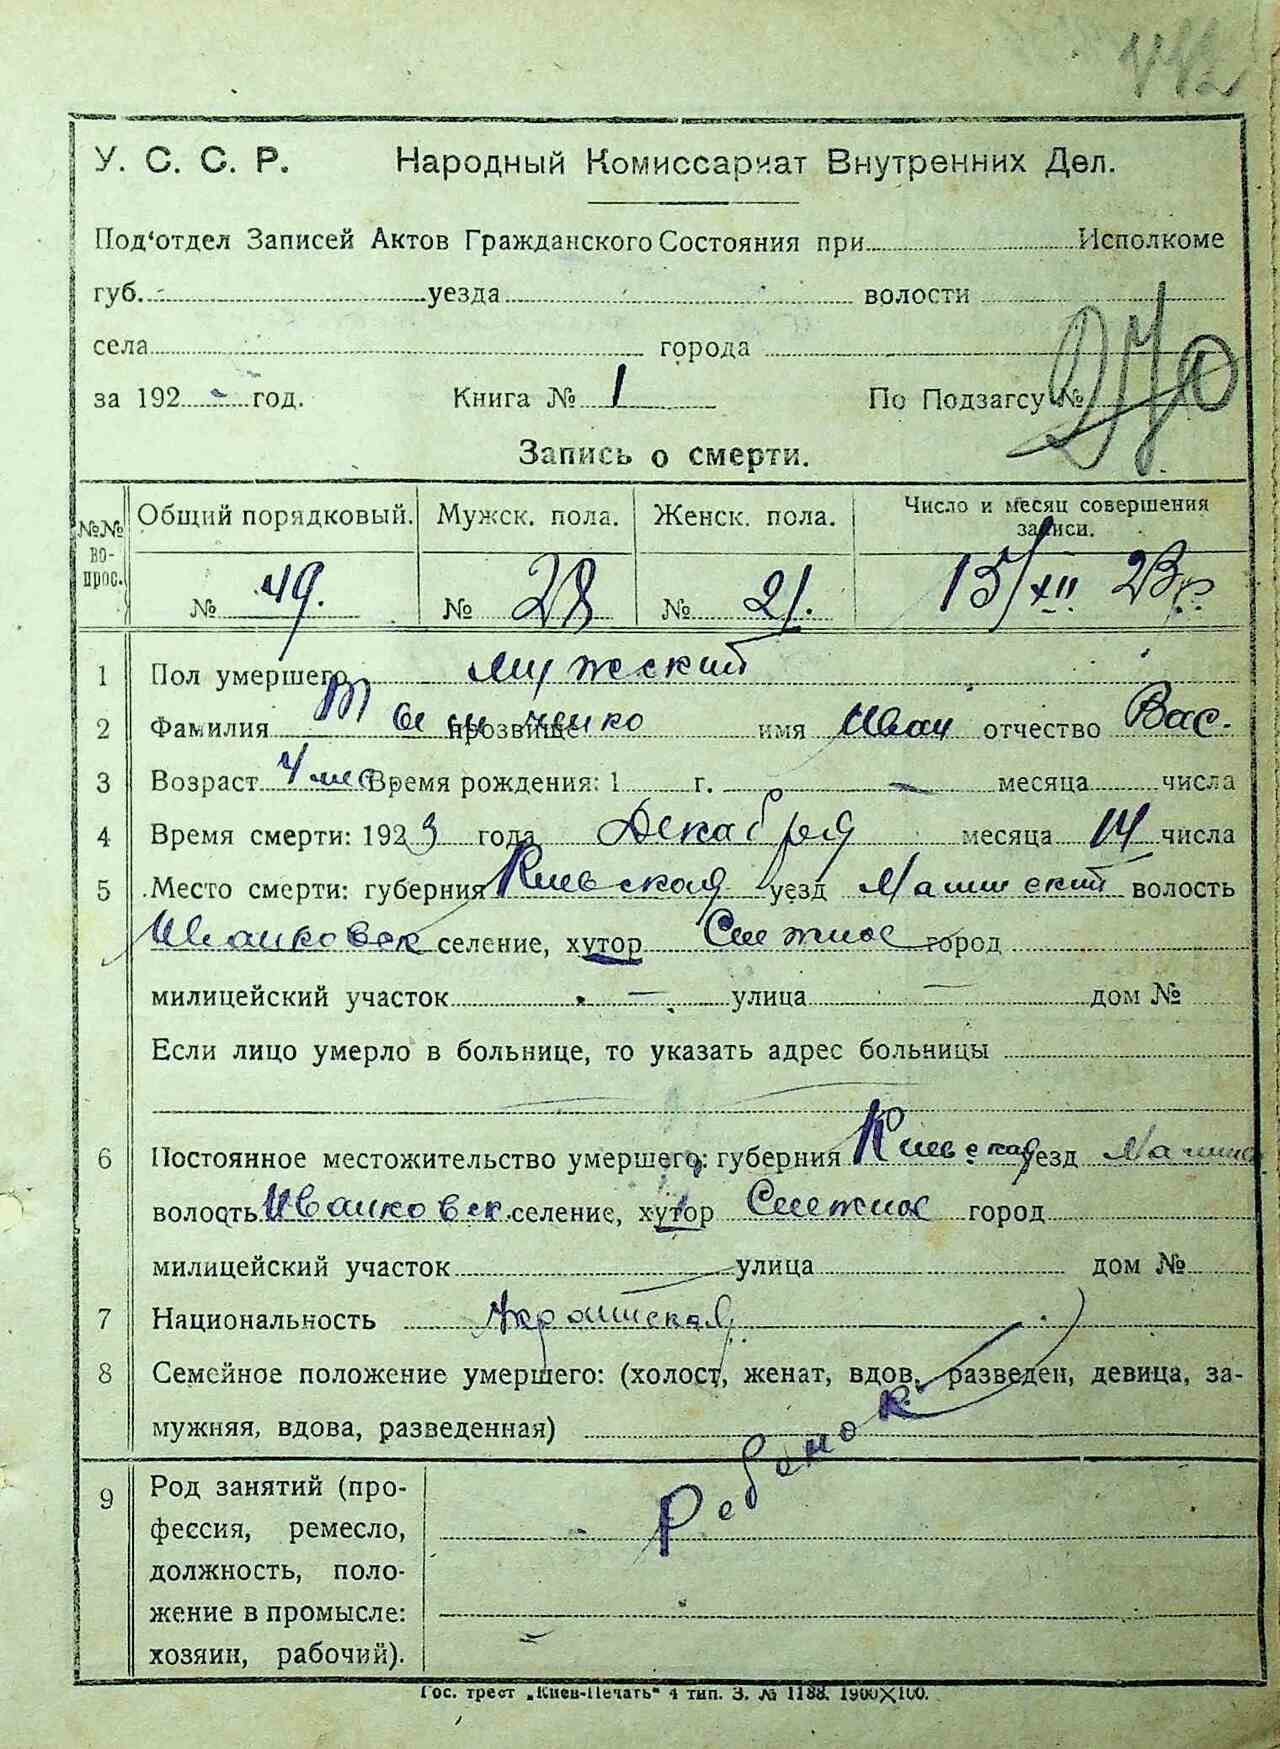 142
У. С. С. Р. Народный Комиссариат Внутренних Дел.
Под‘отдел Записей Актов Гражданского Состояния при Исполкоме
губ. уезда волости
села города
270
за 192 год. Книга № 1 По Подзагсу №
Запись о смерти.
№№ во- прос. Общий порядковый. Мужск. пола. Женск. пола. Число и месяц совершения записи.
№ 49. № 28 № 21. 15/XII 23 г.
1 Пол умершего мужской
2 Фамилия прозвище имя Иван отчество Вас.
3 Возраст 4 мес. Время рождения: 1 г. — месяца числа
4 Время смерти: 1923 года Декабря месяца 14 числа
5 Место смерти: губерния Киевская уезд волость
Иванковск селение, хутор город
милицейский участок — улица — дом №
Если лицо умерло в больнице, то указать адрес больницы
6 Постоянное местожительство умершего: губерния Киевская уезд
волость Иванковск селение, хутор город
милицейский участок улица дом №
7 Национальность Украинская
8 Семейное положение умершего: (холост, женат, вдов, разведен, девица, за-
мужняя, вдова, разведенная)
Ребенок
9 Род занятий (про-
фессия, ремесло,
должность, поло-
жение в промысле:
хозяин, рабочий).
Гос. трест „Киев-Печать“ 4 тип. З. № 1188. 1900X100.